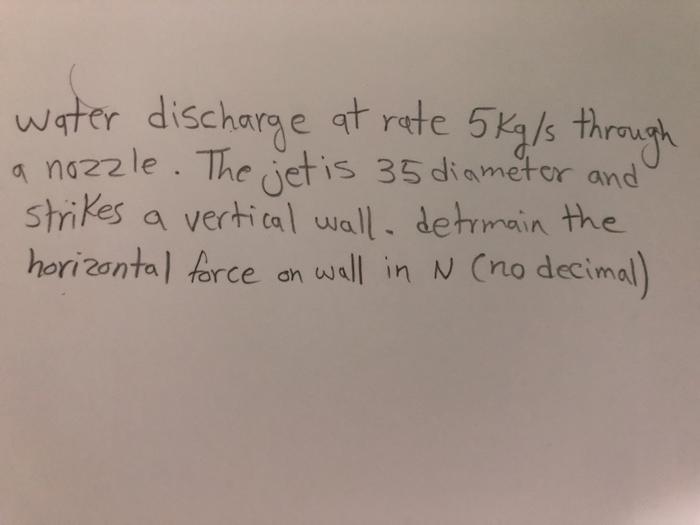 water discharge at rate 5Kg/s through
a nozzle. The jet is 35 diameter and
strikes a vertical wall. detrmain the
horizontal force on wall in N (no decimal)